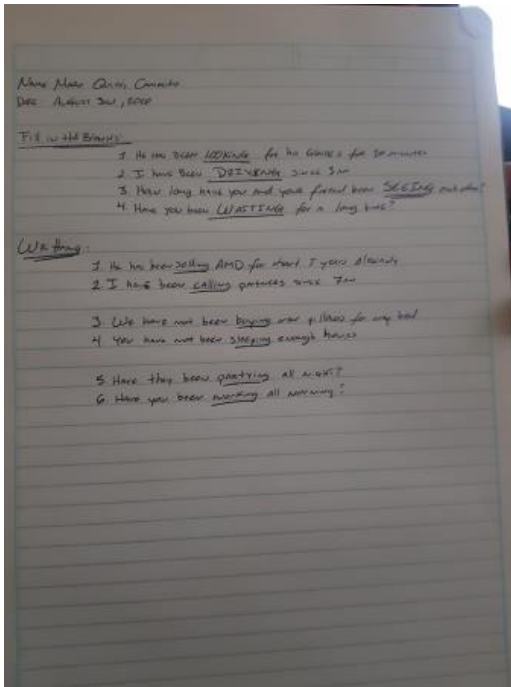 Name Mario
Date August 3rd, 2020
Fill in the Blanks:
1 He has been LOOKING for his glasses for 20 minutes
2 I have Been DRIVING since 5
3 How long have you and your friend been SEEING each other?
4 Have you been WAITING for a long time?
Writing:
1 He has been selling AMD for about 5 years already
2 I have been calling since 7
3 We have not been buying pillows for my bed
4 You have not been sleeping enough hours
5 Have they been partying all night?
6 Have you been working all morning?